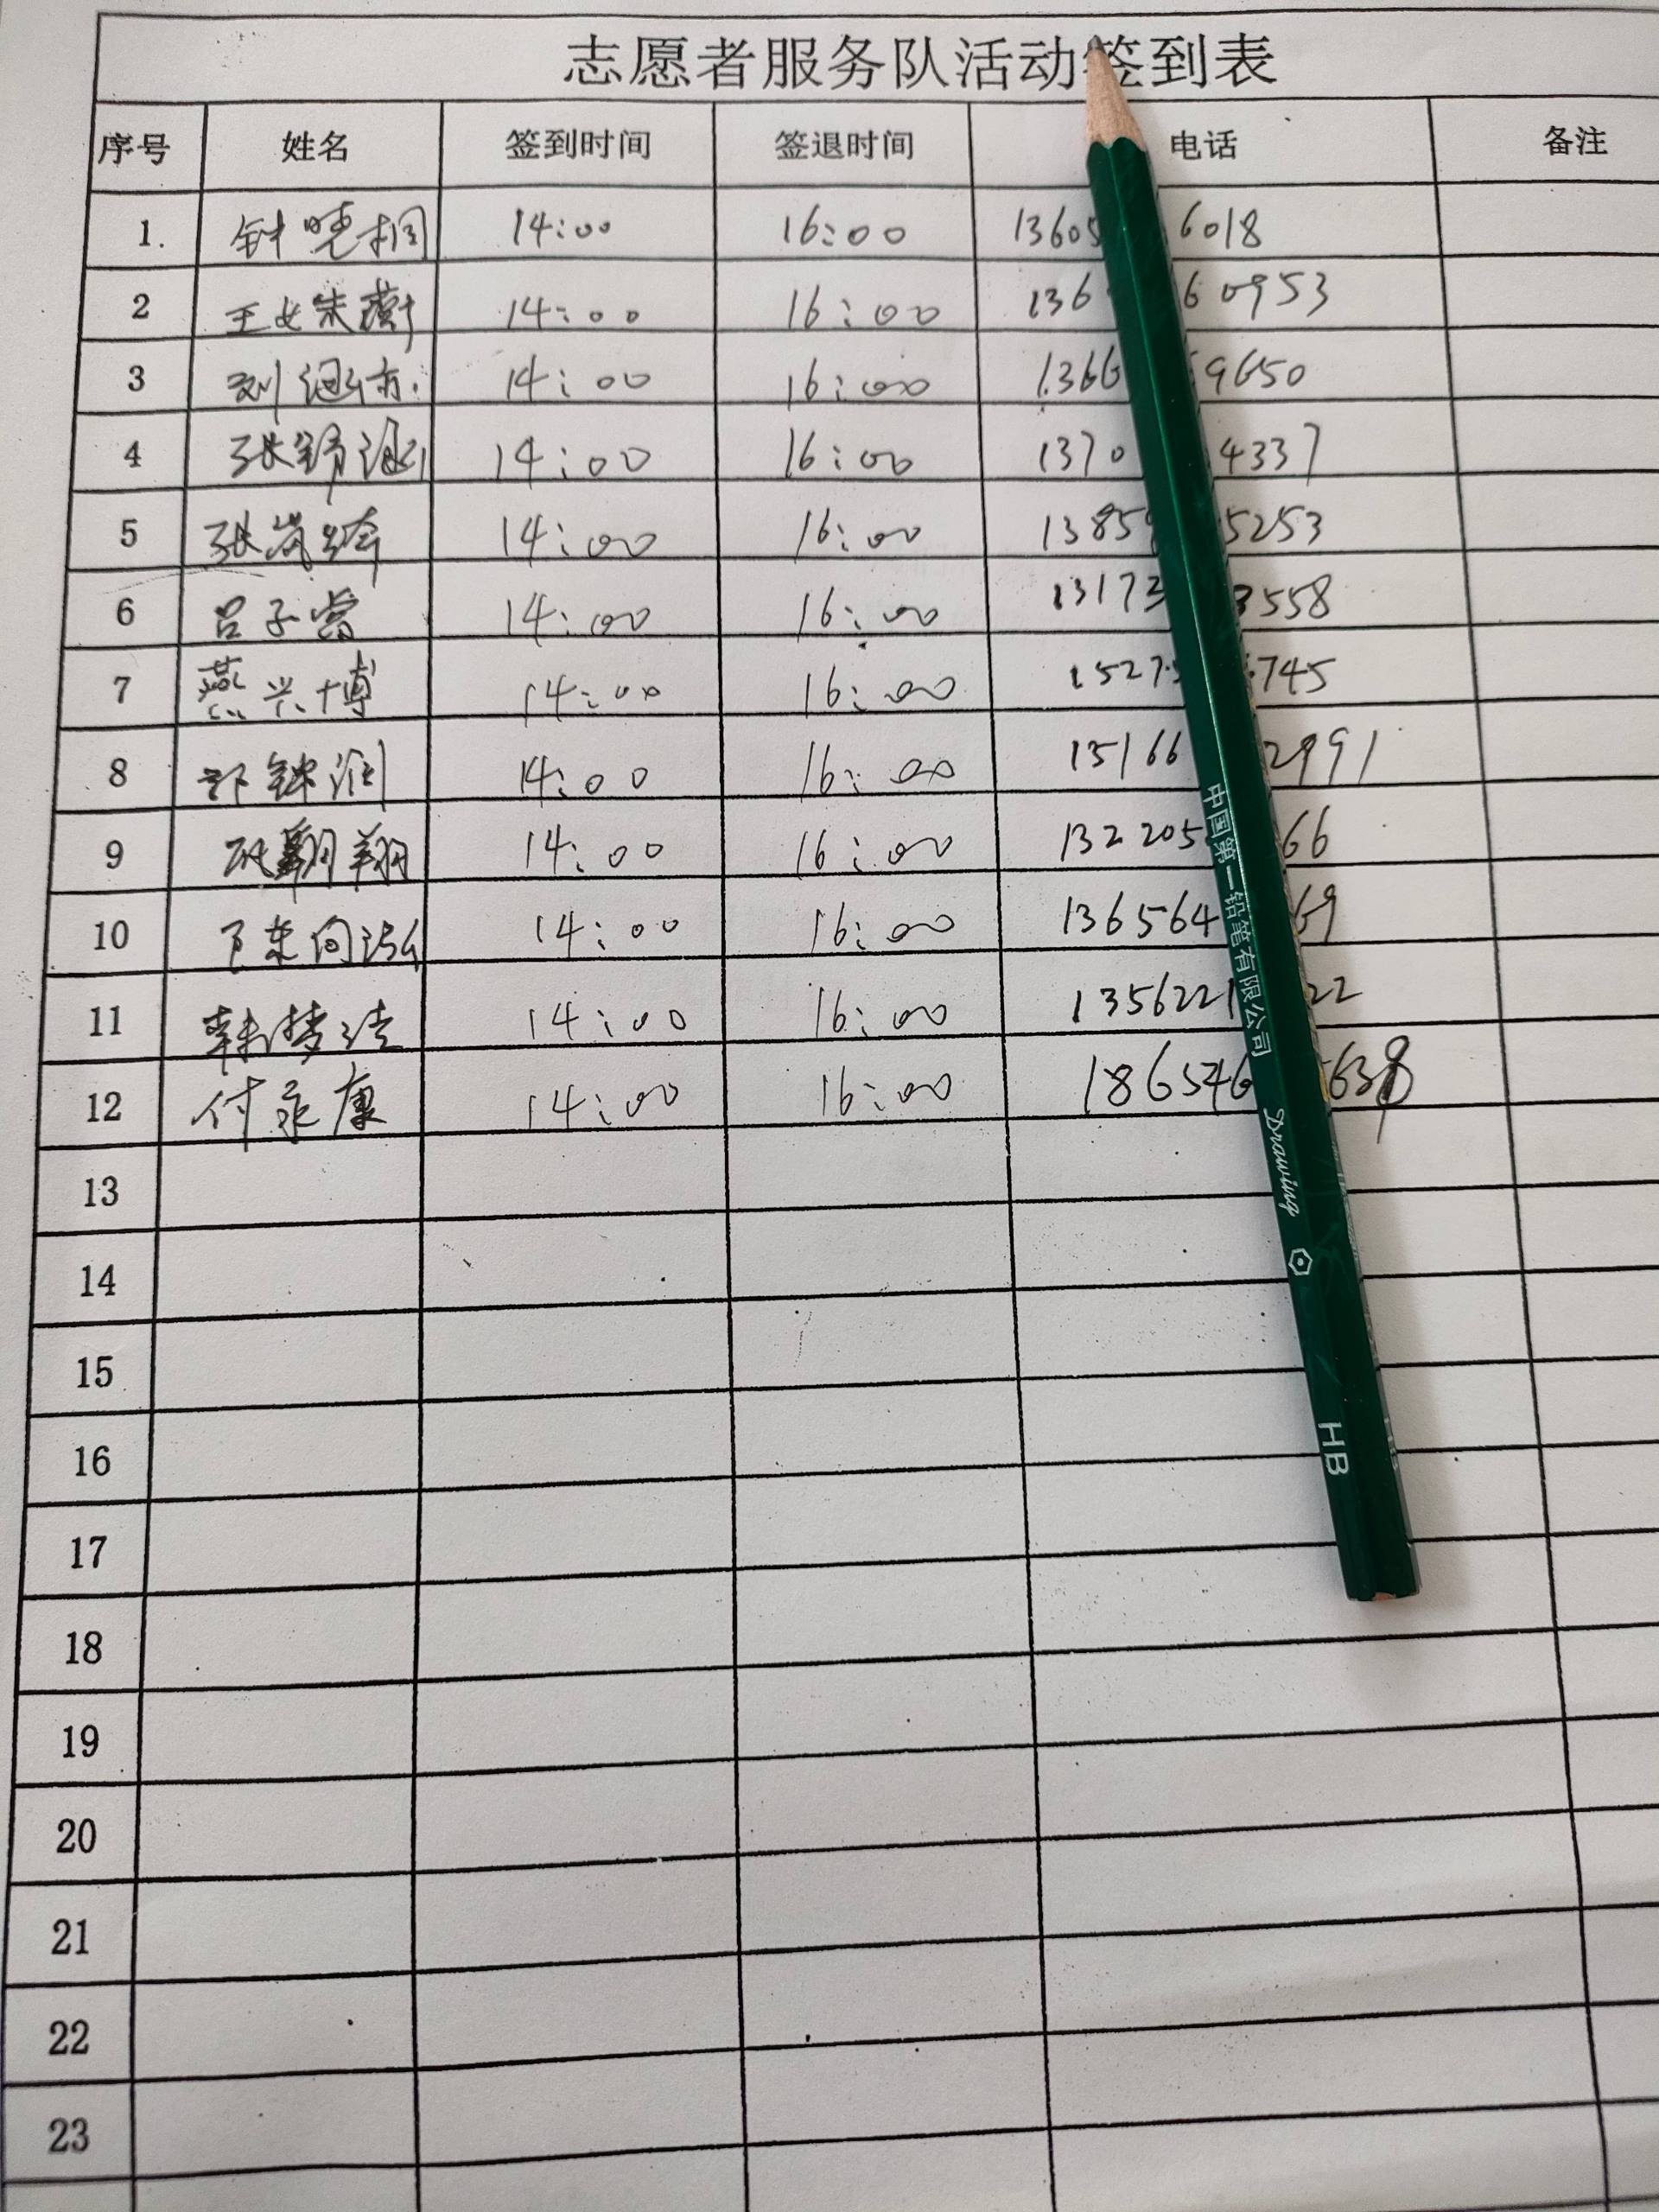 志愿者服务队活动签到表
序号 姓名 签到时间 签退时间 电话 备注
1. 钟晓桐 14:00 16:00 13605 6018
2 王姝蘅 14:00 16:00 136 60953
3 刘 14:00 16:00 1366 9650
4 张 14:00 16:00 1370 4337
5 张 14:00 16:00 1385 5253
6 吕子 14:00 16:00 13173 3558
7 燕兴博 14:00 16:00 15275 745
8 14:00 16:00 15166 2991
9 翱翔 14:00 16:00 132205 66
10 14:00 16:00 136564 69
11 韩梦洁 14:00 16:00 1356221 22
12 付永康 14:00 16:00 186546 638
13
14
15
16
17
18
19
20
21
22
23
中国第一铅笔有限公司 Drawing HB